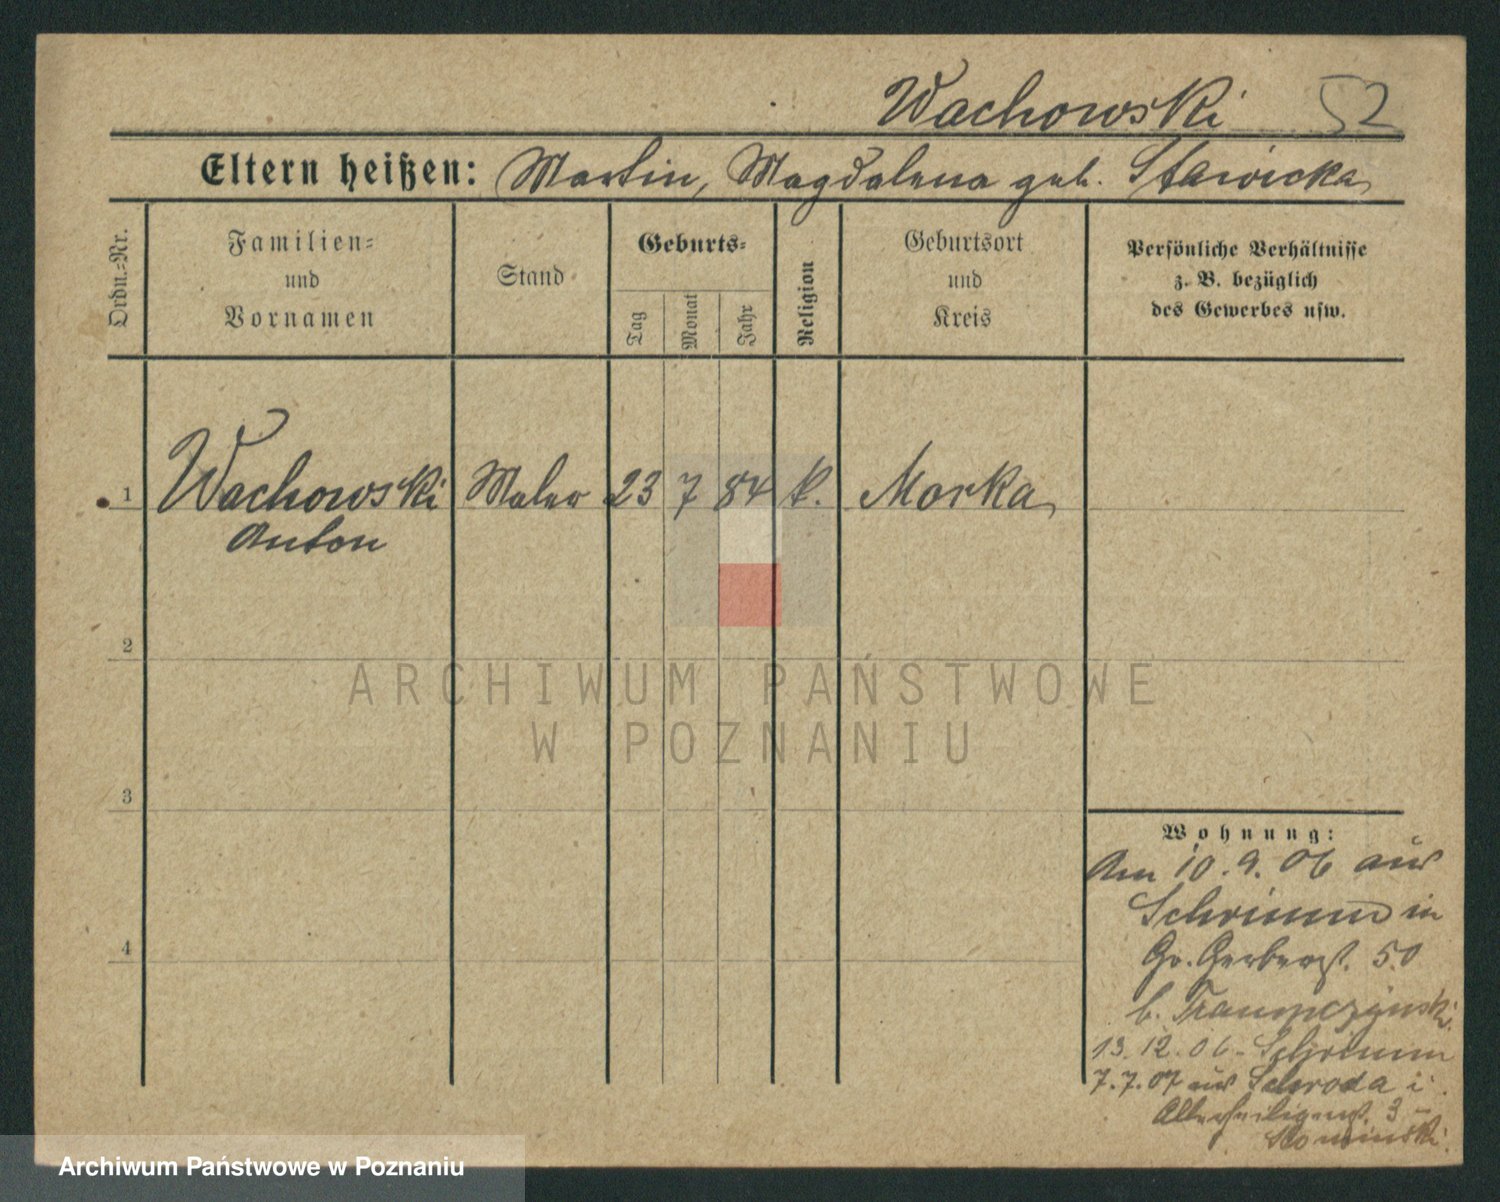 Wachowski 52
Eltern heißen: Martin, Magdalena geb. Stawicka
Ordn.=Nr.
Familien=
und
Vornamen
Stand
Geburts=
Tag
Monat
Jahr
Religion
Geburtsort
und
Kreis
Persönliche Verhältnisse
z. B. bezüglich
des Gewerbes usw.
1 Wachowski Maler 23 7 84 k. Morka
Anton
2
3
4
Wohnung:
Am 10. 9. 06 aus
Schrimm in
Gr. Gerberst. 50
b. Trampczynski
13. 12. 06 - Schrimm
7. 7. 07 aus Schroda i.
Allerheiligenst. 3 -
Slominski
ARCHIWUM PAŃSTWOWE
W POZNANIU
Archiwum Państwowe w Poznaniu